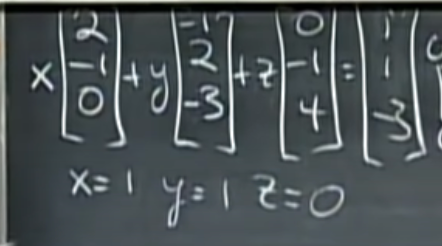 x [2 -1 0] + y [-1 2 -3] + z [0 -1 4] = [1 1 -3]
x=1 y=1 z=0